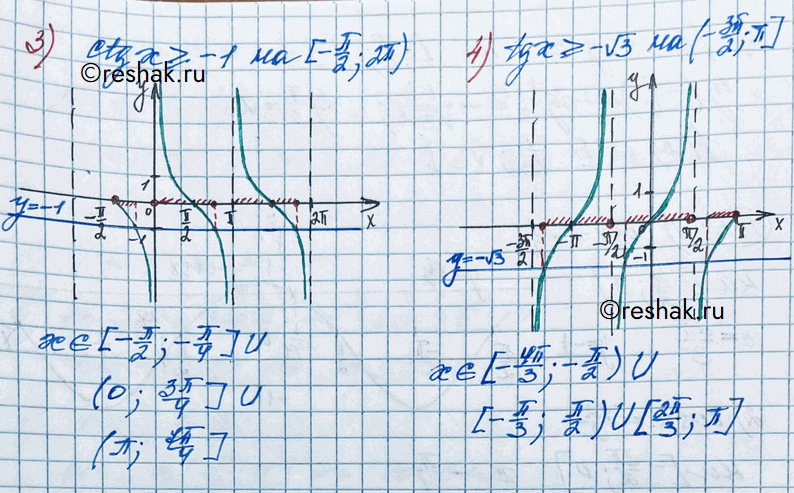 3) ctg x ≥ -1 на [-π/2; 2π)
©reshak.ru
y
1
y=-1
-π/2
-1
0
π/2
π
2π
x
x ∈ [-π/2; -π/4] ∪
(0; 3π/4] ∪
(π; 7π/4]
4) tg x ≥ -√3 на (-3π/2; π]
y
1
y=-√3
-3π/2
-π
-π/2
0
-1
π/2
π
x
©reshak.ru
x ∈ [-4π/3; -π/2) ∪
[-π/3; π/2) ∪ [2π/3; π]